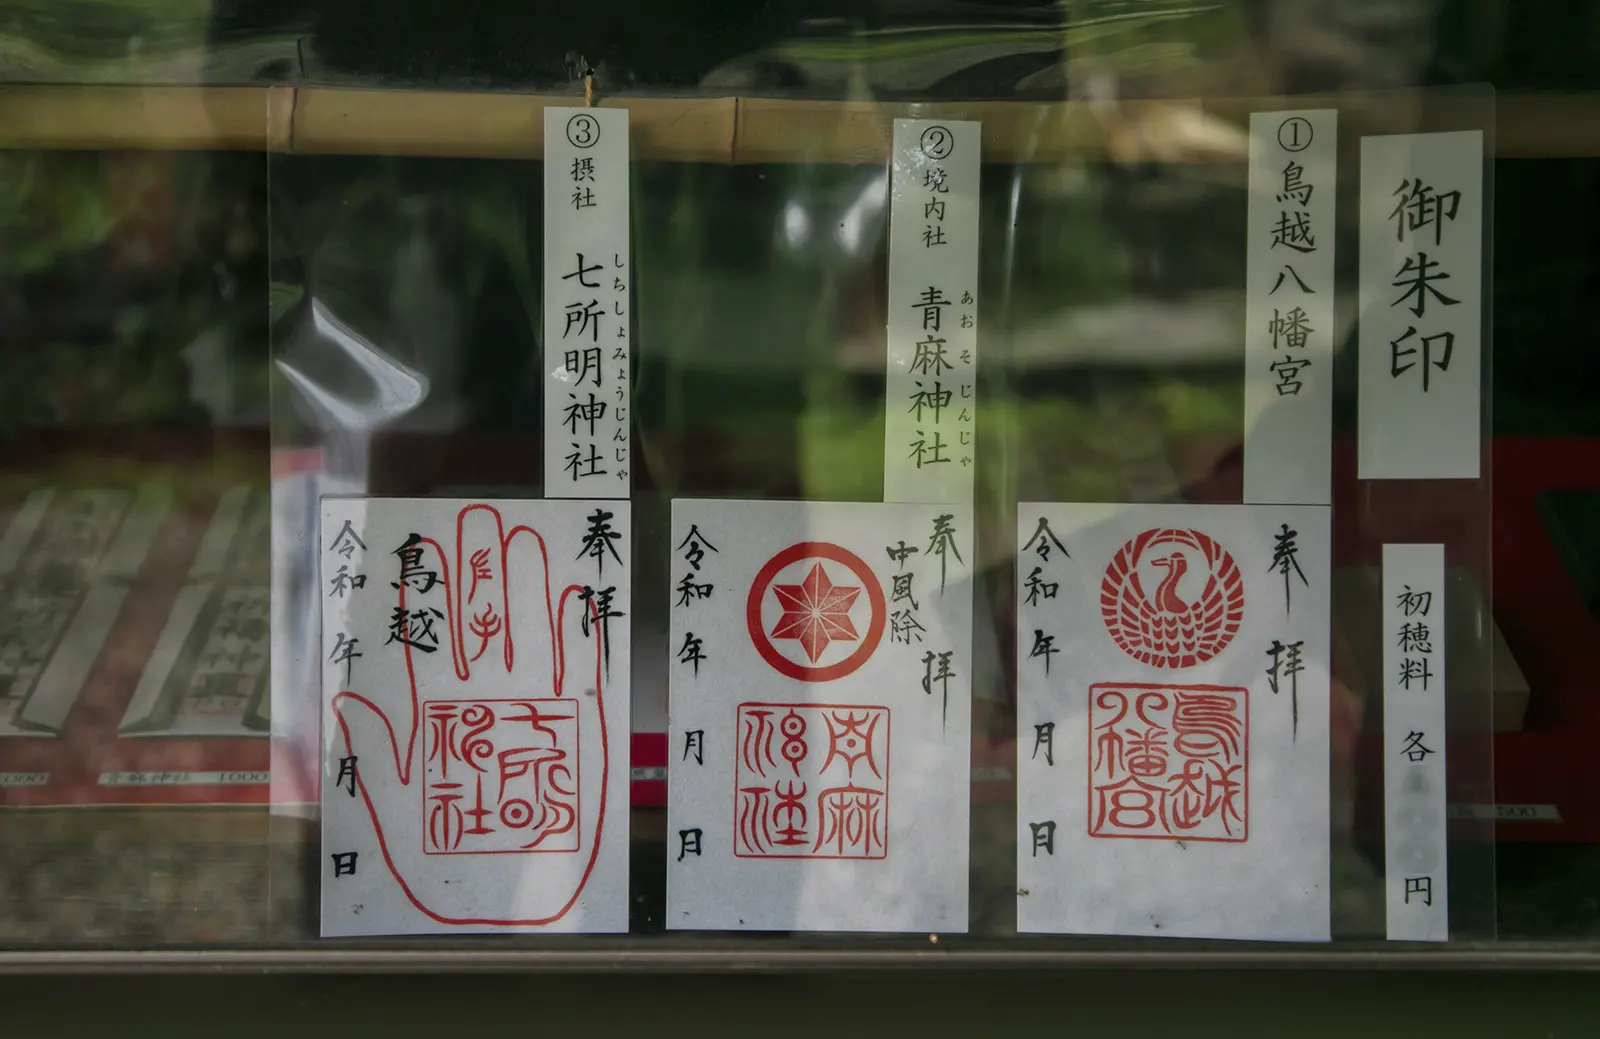 御朱印
初穂料 各 円
①鳥越八幡宮
奉拝
鳥越八幡宮
令和 年 月 日
②境内社 青麻神社
あおそじんじゃ
奉拝
中風除
令和 年 月 日
③摂社 七所明神社
しちしょみょうじんじゃ
奉拝
七所明神社
鳥越
令和 年 月 日
青麻神社 1000
1000
500